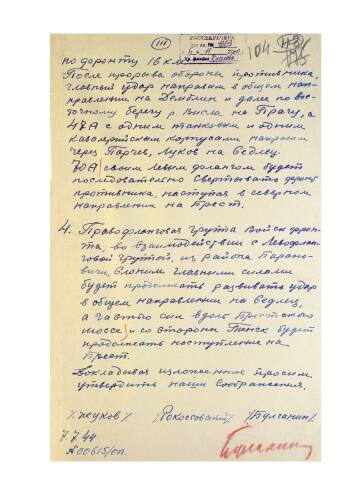 III
РАССЕКРЕЧЕНО
104
по фронту 16 км.
После прорыва обороны противника,
главный удар направим в общем нап-
равлении на Демблин и далее по вос-
точному берегу р. Висла на Прагу, а
47А с одним танковым и одним
кавалерийским корпусами направим
через Парчев, Луков на Седлец.
70А своим левым флангом будет
последовательно свертывать фронт
противника, наступая в северном
направлении на Брест.
4. Правофланговая группа войск фрон-
та, во взаимодействии с левофлан-
говой группой, из района Барано-
вичи, Слоним главными силами
будет продолжать развивать удар
в общем направлении на Седлец,
а частью сил вдоль Брестского
шоссе и со стороны Пинск будет
продолжать наступление на
Брест.
Докладывая изложенное просим
утвердить наши соображения.
/Жуков/ /Рокоссовский/ /Булганин/
7.7.44
№00615/оп.
Булганин